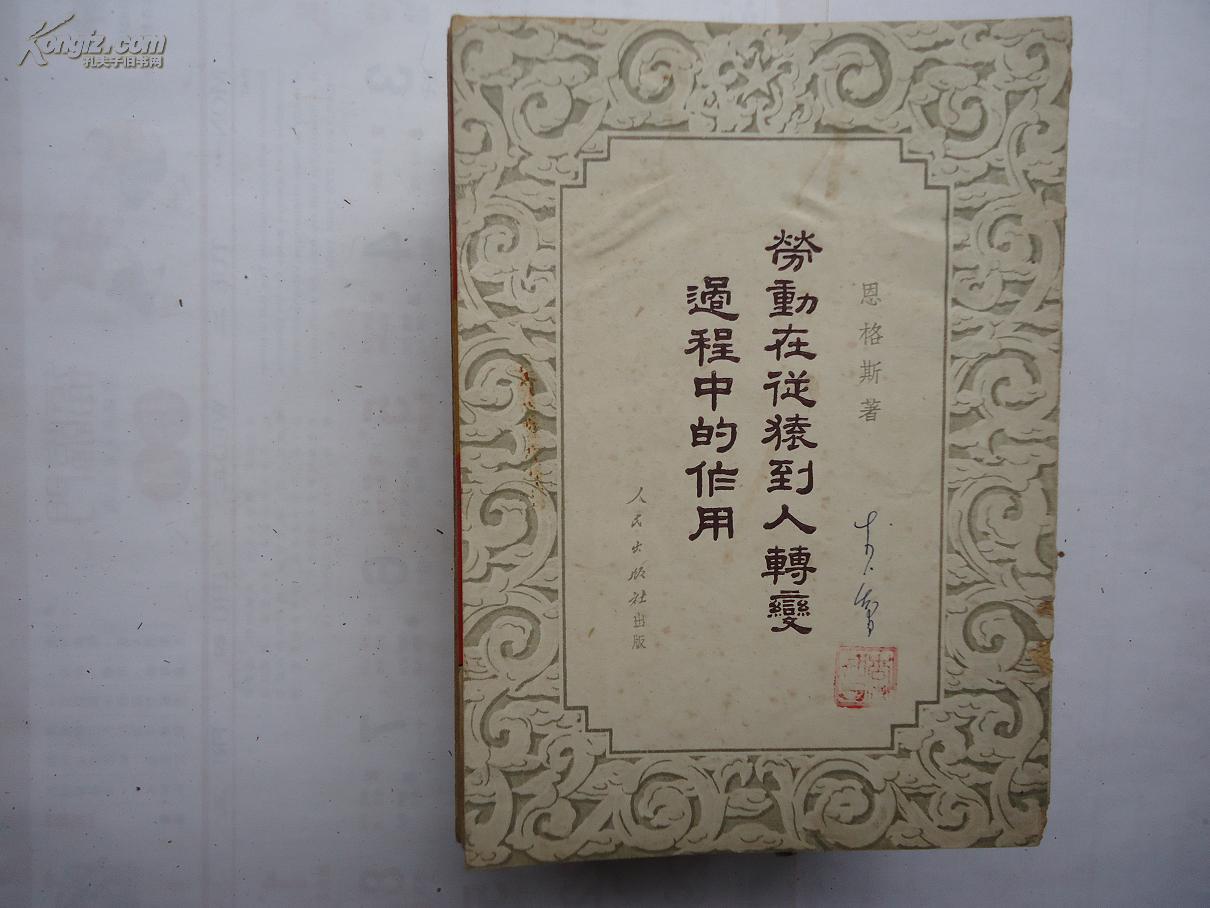 Kongfz.com
孔夫子旧书网
恩格斯著
勞動在從猿到人轉變
過程中的作用
人民出版社出版